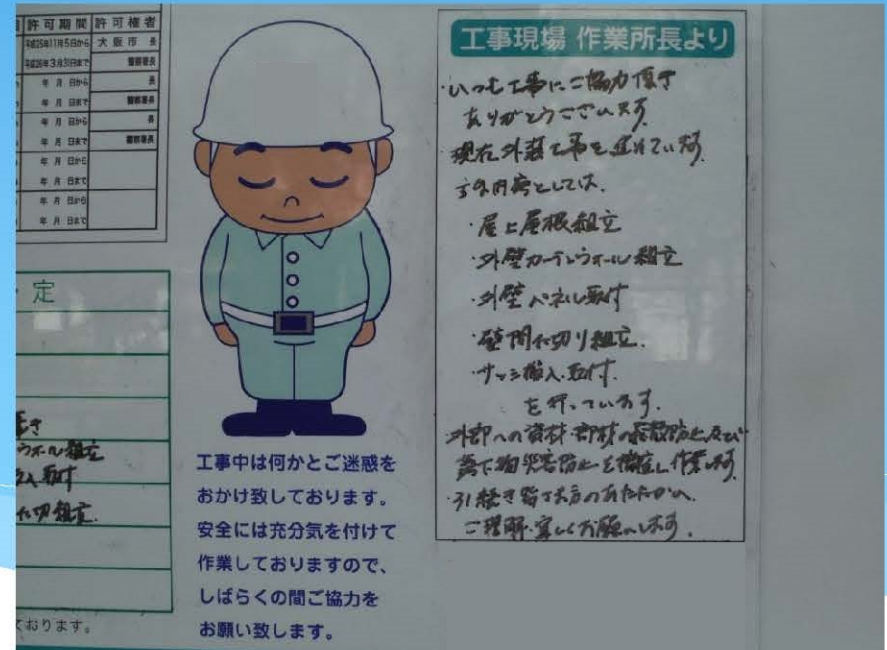 許可期間 許可権者
平成25年11月5日から 大阪市 長
平成26年3月31日まで 警察署長
年 月 日から 長
年 月 日まで 警察署長
年 月 日から 長
年 月 日まで 警察署長
年 月 日から
年 月 日まで
年 月 日から
年 月 日まで
定
ウォール組立
取付
切組立.
ております。
工事中は何かとご迷惑を
おかけ致しております。
安全には充分気を付けて
作業しておりますので、
しばらくの間ご協力を
お願い致します。
工事現場 作業所長より
いつも工事にご協力頂き
ありがとうございます。
現在外装工事を進めています。
主な内容としては、
・屋上屋根組立
・外壁カーテンウォール組立
・外壁パネル取付
・壁間仕切り組立.
・サッシ搬入.取付.
を行っています.
外部への資材・部材の飛散防止及び
落下物災害防止を徹底し作業します.
引続き皆さま方のあたたかい
ご理解・宜しくお願いします.